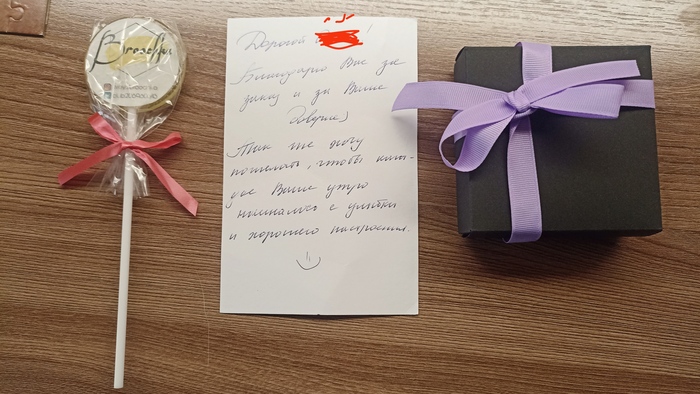 Дорогой !
Благодарю Вас за
заказ и за Ваше
доверие)
Так же хочу
пожелать, чтобы каж-
дое Ваше утро
начиналось с улыбки
и хорошего настроения.